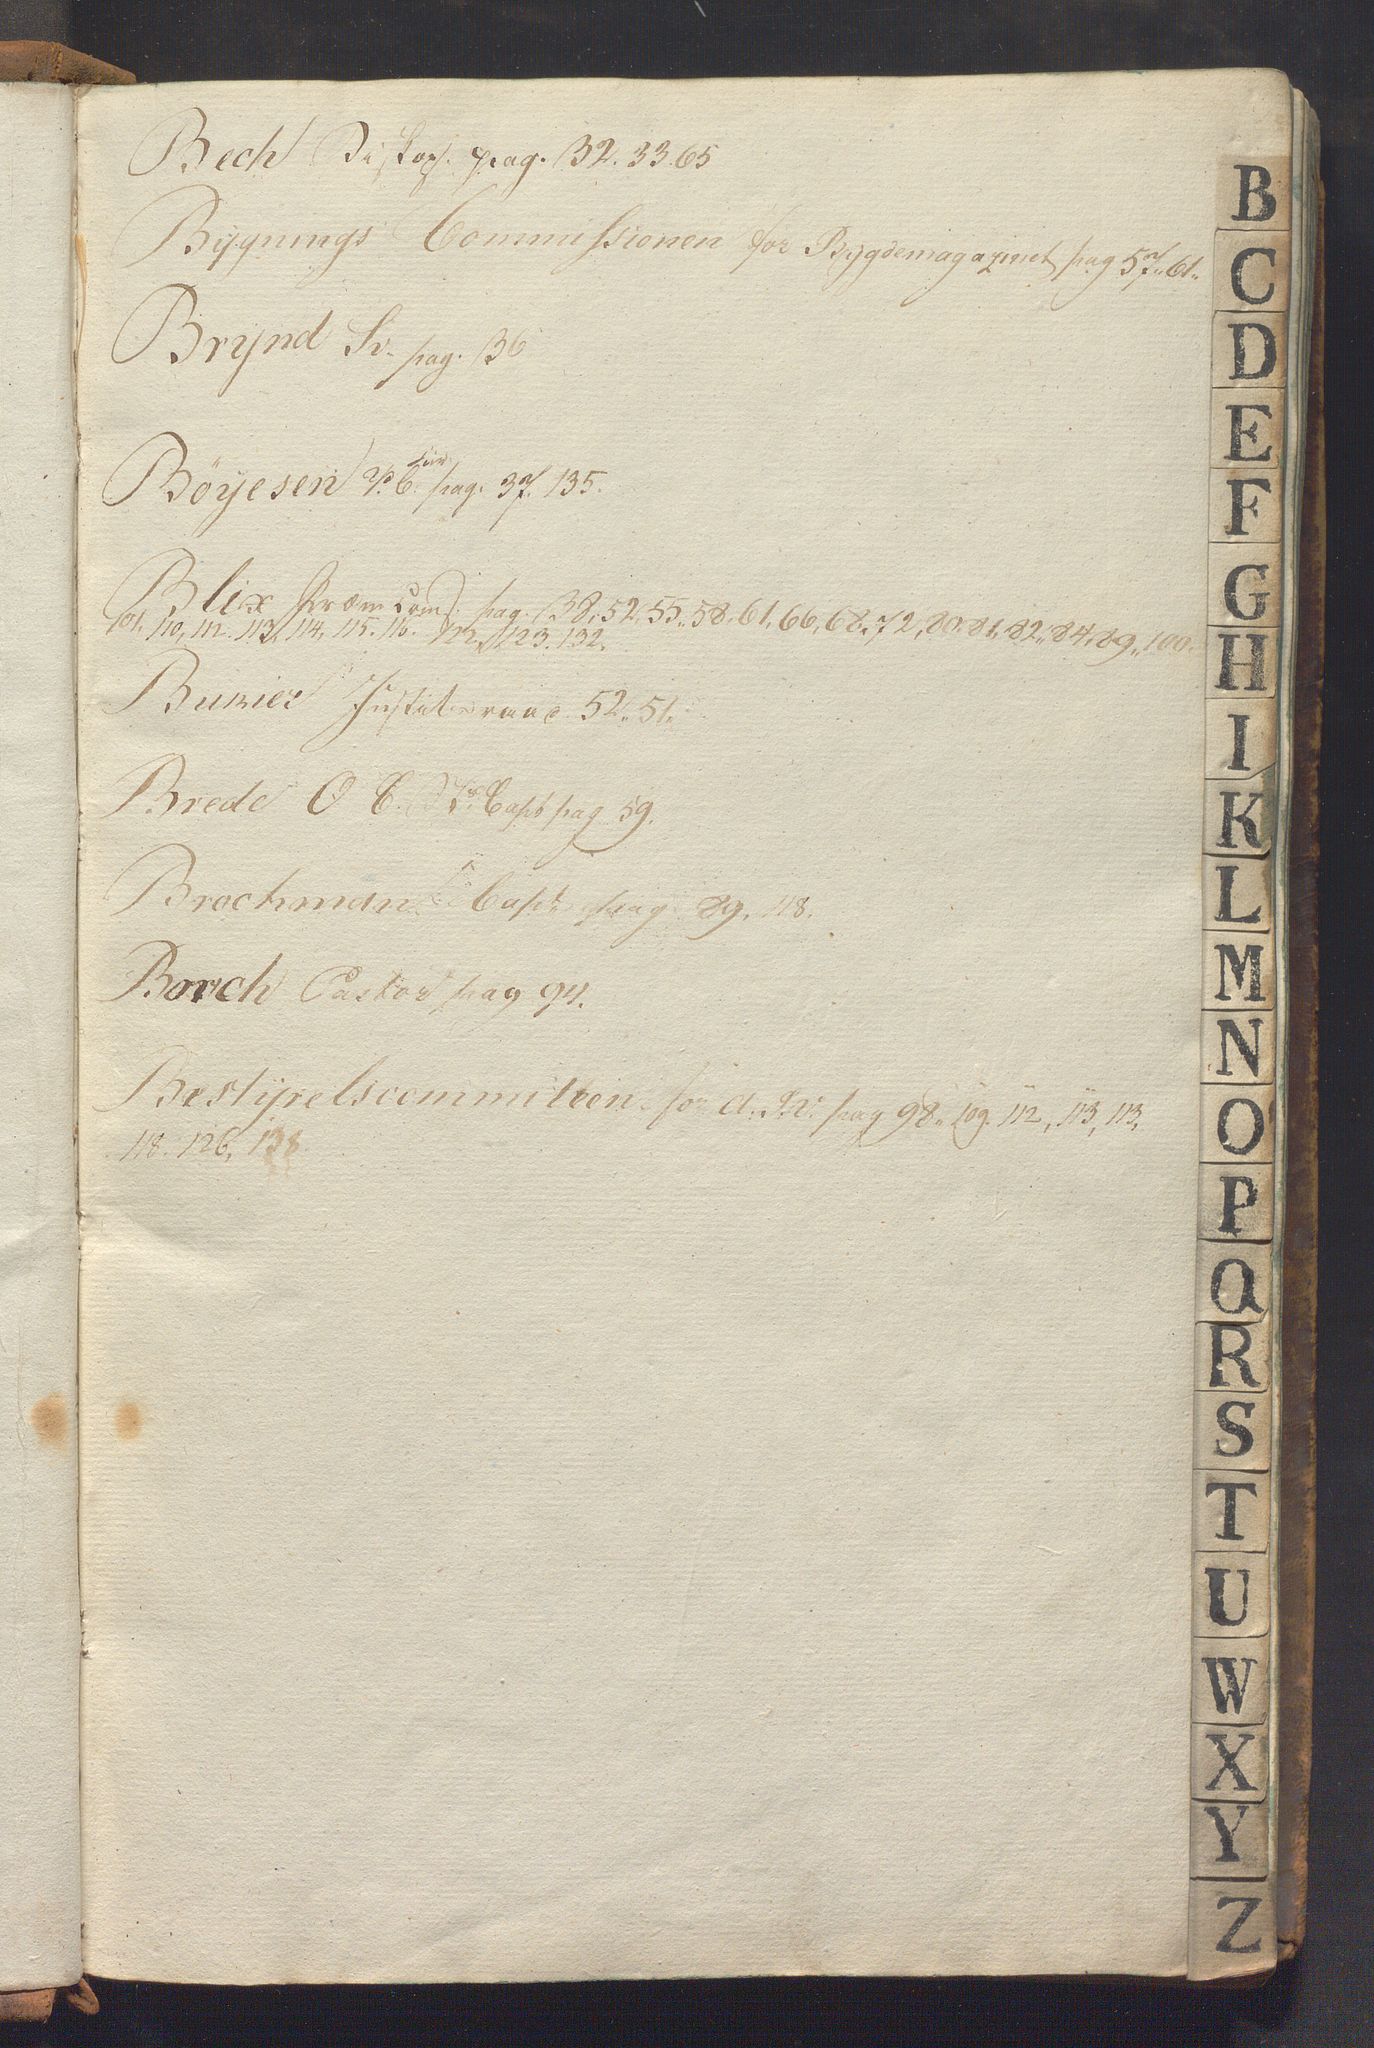 Bech Biskop. pag. 32. 33. 65
Bygnings Commissionen for Bygdemagazinet pag 57. 61.
Brynd Sv. pag. 36
Böyesen pag. 37. 135.
Blix pag. 38, 52, 55, 58, 61, 66, 68, 72, 80, 81, 82, 84, 89, 100.
101. 110, 112. 113, 114, 115. 116. 122, 123. 132.
Bumier Justitsraad 52. 51.
Brede O C. Capt pag 59.
Brochman Capt pag 89, 118.
Borch Pastor pag 94.
Bestyrelscommitteen for pag 98. 109. 112, 113, 113,
118. 126, 138
B
C
D
E
F
G
H
I
K
L
M
N
O
P
Q
R
S
T
U
W
X
Y
Z